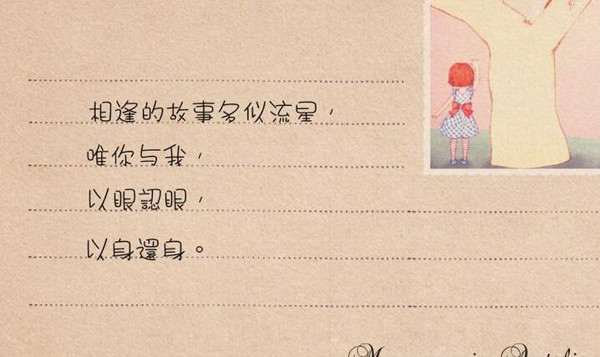 相逢的故事多似流星，
唯你与我，
以眼認眼，
以身還身。